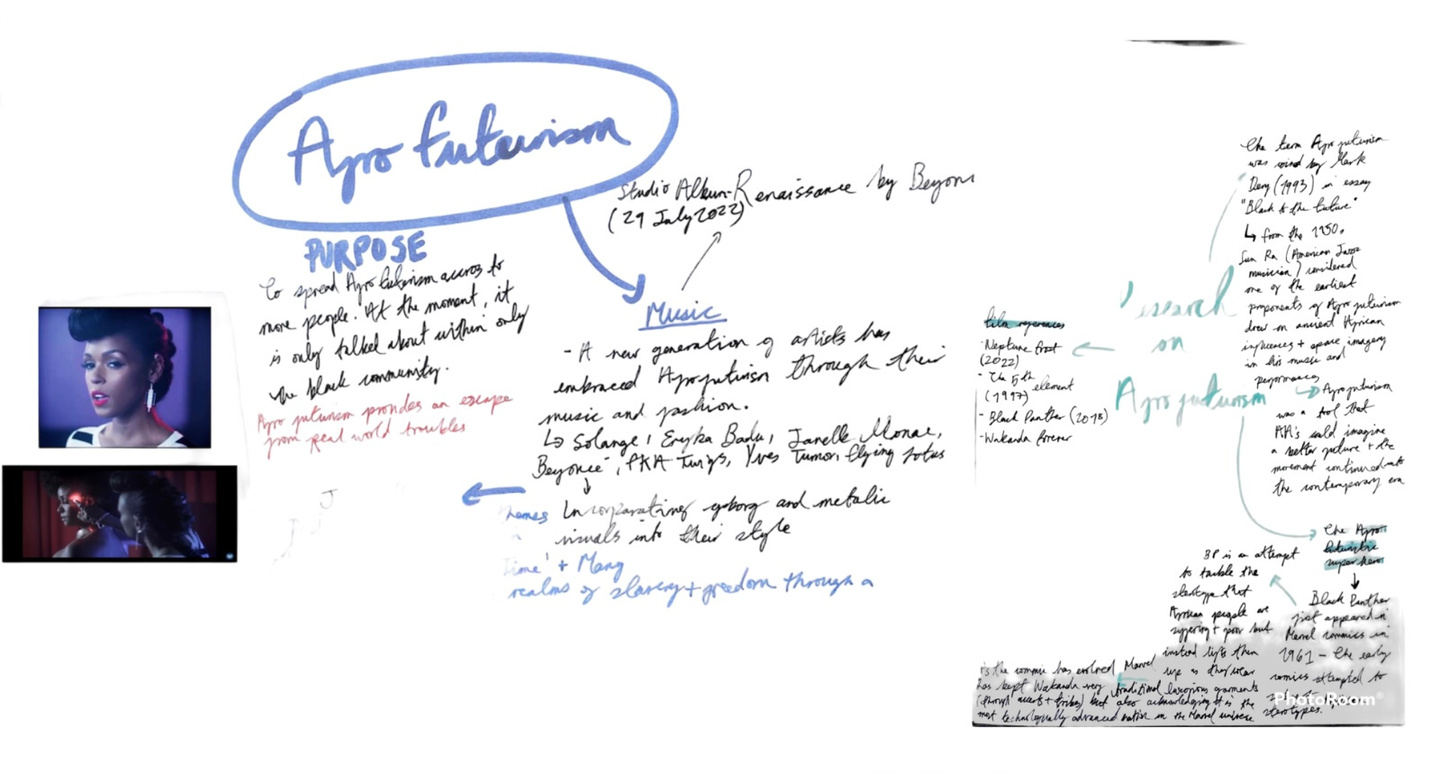 Afro futurism
PURPOSE
To spread Afro futurism across to
more people. At the moment, it
is only talked about within only
the black community.
Afro futurism provides an escape
from real world troubles
Studio Album - Renaissance by Beyon
(29 July 2022)
Music
- A new generation of artists has
embraced Afrofuturism through their
music and fashion.
↳ Solange, Eryka Badu, Janelle Monae,
Beyonce, FKA Twigs, Yves Tumor, flying lotus
Incorparating cyborg and metalic
visuals into their style
hemes
ime' + Many
realms of slavery + freedom through a
research
on
Afro futurism
film references
- Neptune Frost
(2022)
- The 5th element
(1997)
- Black Panther (2018)
- Wakanda forever
The term Afro futurism
was coind by Mark
Dery (1993) in essay
"Black to the future"
↳ from the 1950s
Sun Ra (American Jazz
musician) considered
one of the earliest
proponents of Afro futurism
drew on ancient African
influences + space imagery
in his music and
performances
Afro futurism
was a tool that
could imagine
a better future + the
movement continued into
the contemporary era
The Afro
futuristic
super hero
Black Panther
first appeared in
Marvel commics in
1961 - The early
comics attempted to
sterotypes.
BP is an attempt
to tackle the
sterotype that
African people are
suffering + poor but
instead lifts them
up as they wear
traditional luxurious garments
As the commic has evolved Marvel
has kept Wakanda very
(through + tribes) but also acknowledging it is the
most technologically advanced nation in the Marvel universe
PhotoRoom